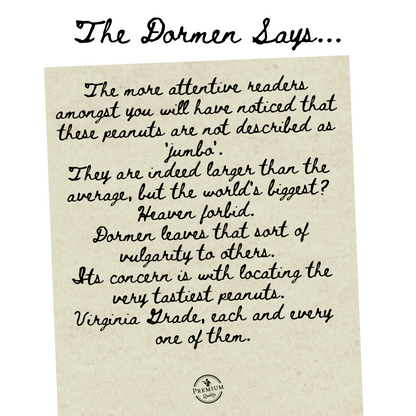 The Dormen Says...
The more attentive readers
amongst you will have noticed that
these peanuts are not described as
'jumbo'.
They are indeed larger than the
average, but the world's biggest?
Heaven forbid.
Dormen leaves that sort of
vulgarity to others.
Its concern is with locating the
very tastiest peanuts.
Virginia Grade, each and every
one of them.
PREMIUM
Quality